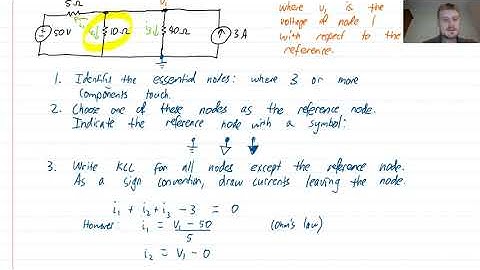 5Ω
V₁
50V
10Ω
40Ω
3A
where v₁ is the
voltage of node 1
with respect to the
reference.
1. Identify the essential nodes: where 3 or more
components touch.
2. Choose one of these nodes as the reference node.
Indicate the reference node with a symbol:
3. Write KCL for all nodes except the reference node.
As a sign convention, draw currents leaving the node.
i₁ + i₂ + i₃ - 3 = 0
However: i₁ = V₁ - 50 / 5 (Ohm's law)
i₂ = V₁ - 0